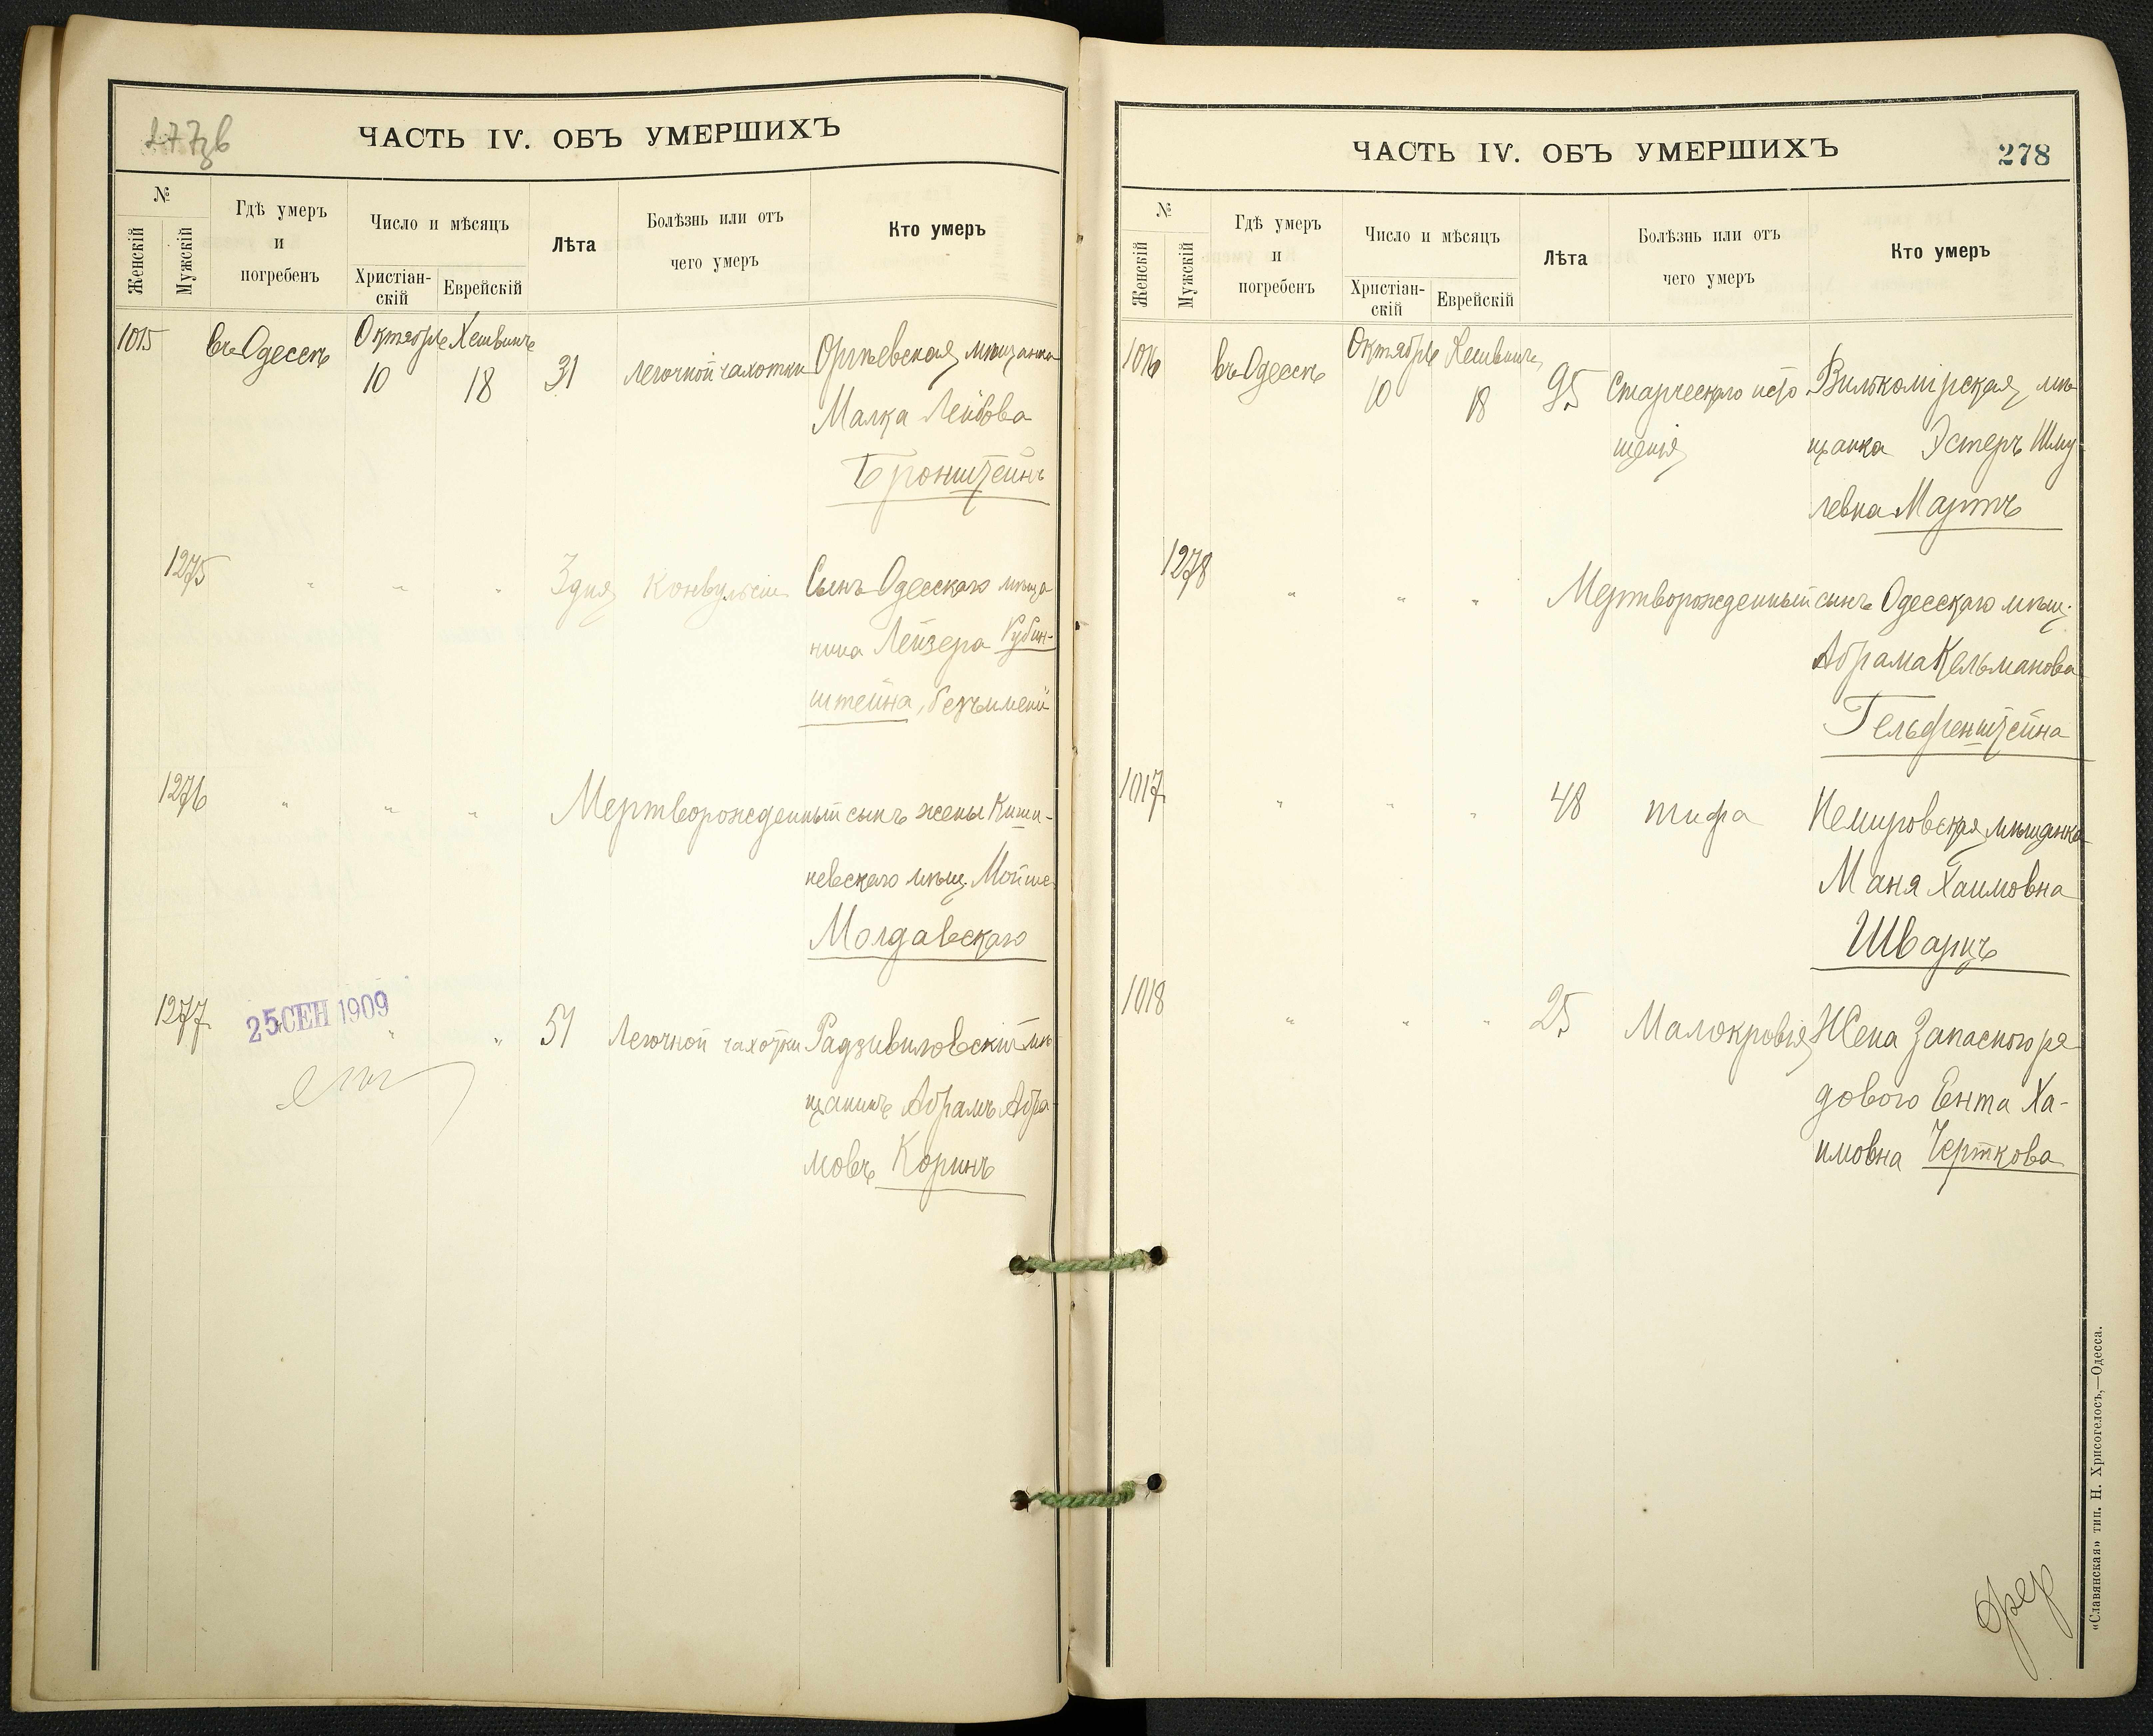 277зв
ЧАСТЬ IV. ОБЪ УМЕРШИХЪ
№
Женскій
Мужскій
Гдѣ умеръ
и
погребенъ
Число и мѣсяцъ
Христіан-
скій
Еврейскій
Лѣта
Болѣзнь или отъ
чего умеръ
Кто умеръ
1015 въ Одессѣ Октябрь 10 Хешвинъ 18 31 Легочной чахотки Оргѣевская мѣщанка
Малка Лейбова
Бронштейнъ
1275 " " " 3 дня Конвульсіи Сынъ Одесскаго мѣща
нина Лейзера Рубин-
штейна, безъ имени
1276 " " " Мертворожденный сынъ жены Киши-
невскаго мѣщ. Мойше
Молдавскаго
1277 25 СЕН 1909 " " 51 Легочной чахотки Радзивиловскій мѣ
щанинъ Абрамъ Абра-
мовъ Коринъ
ЧАСТЬ IV. ОБЪ УМЕРШИХЪ
278
№
Женскій
Мужскій
Гдѣ умеръ
и
погребенъ
Число и мѣсяцъ
Христіан-
скій
Еврейскій
Лѣта
Болѣзнь или отъ
чего умеръ
Кто умеръ
1016 въ Одессѣ Октябрь 10 Хешвинъ 18 95 Старческаго исто Вилькомірская мѣ
щенія щанка Эстеръ Шму-
левна Мартъ
1278 " " " Мертворожденный сынъ Одесскаго мѣщ.
Абрама Кельманова
Гельфенштейна
1017 " " " 48 тифа Немировская мѣщанка
Маня Хаимовна
Шварцъ
1018 " " " 25 Малокровія Жена Запасного ря
дового Ента Ха-
имовна Черткова
«Славянская» тип. Н. Хрисогелосъ,—Одесса.